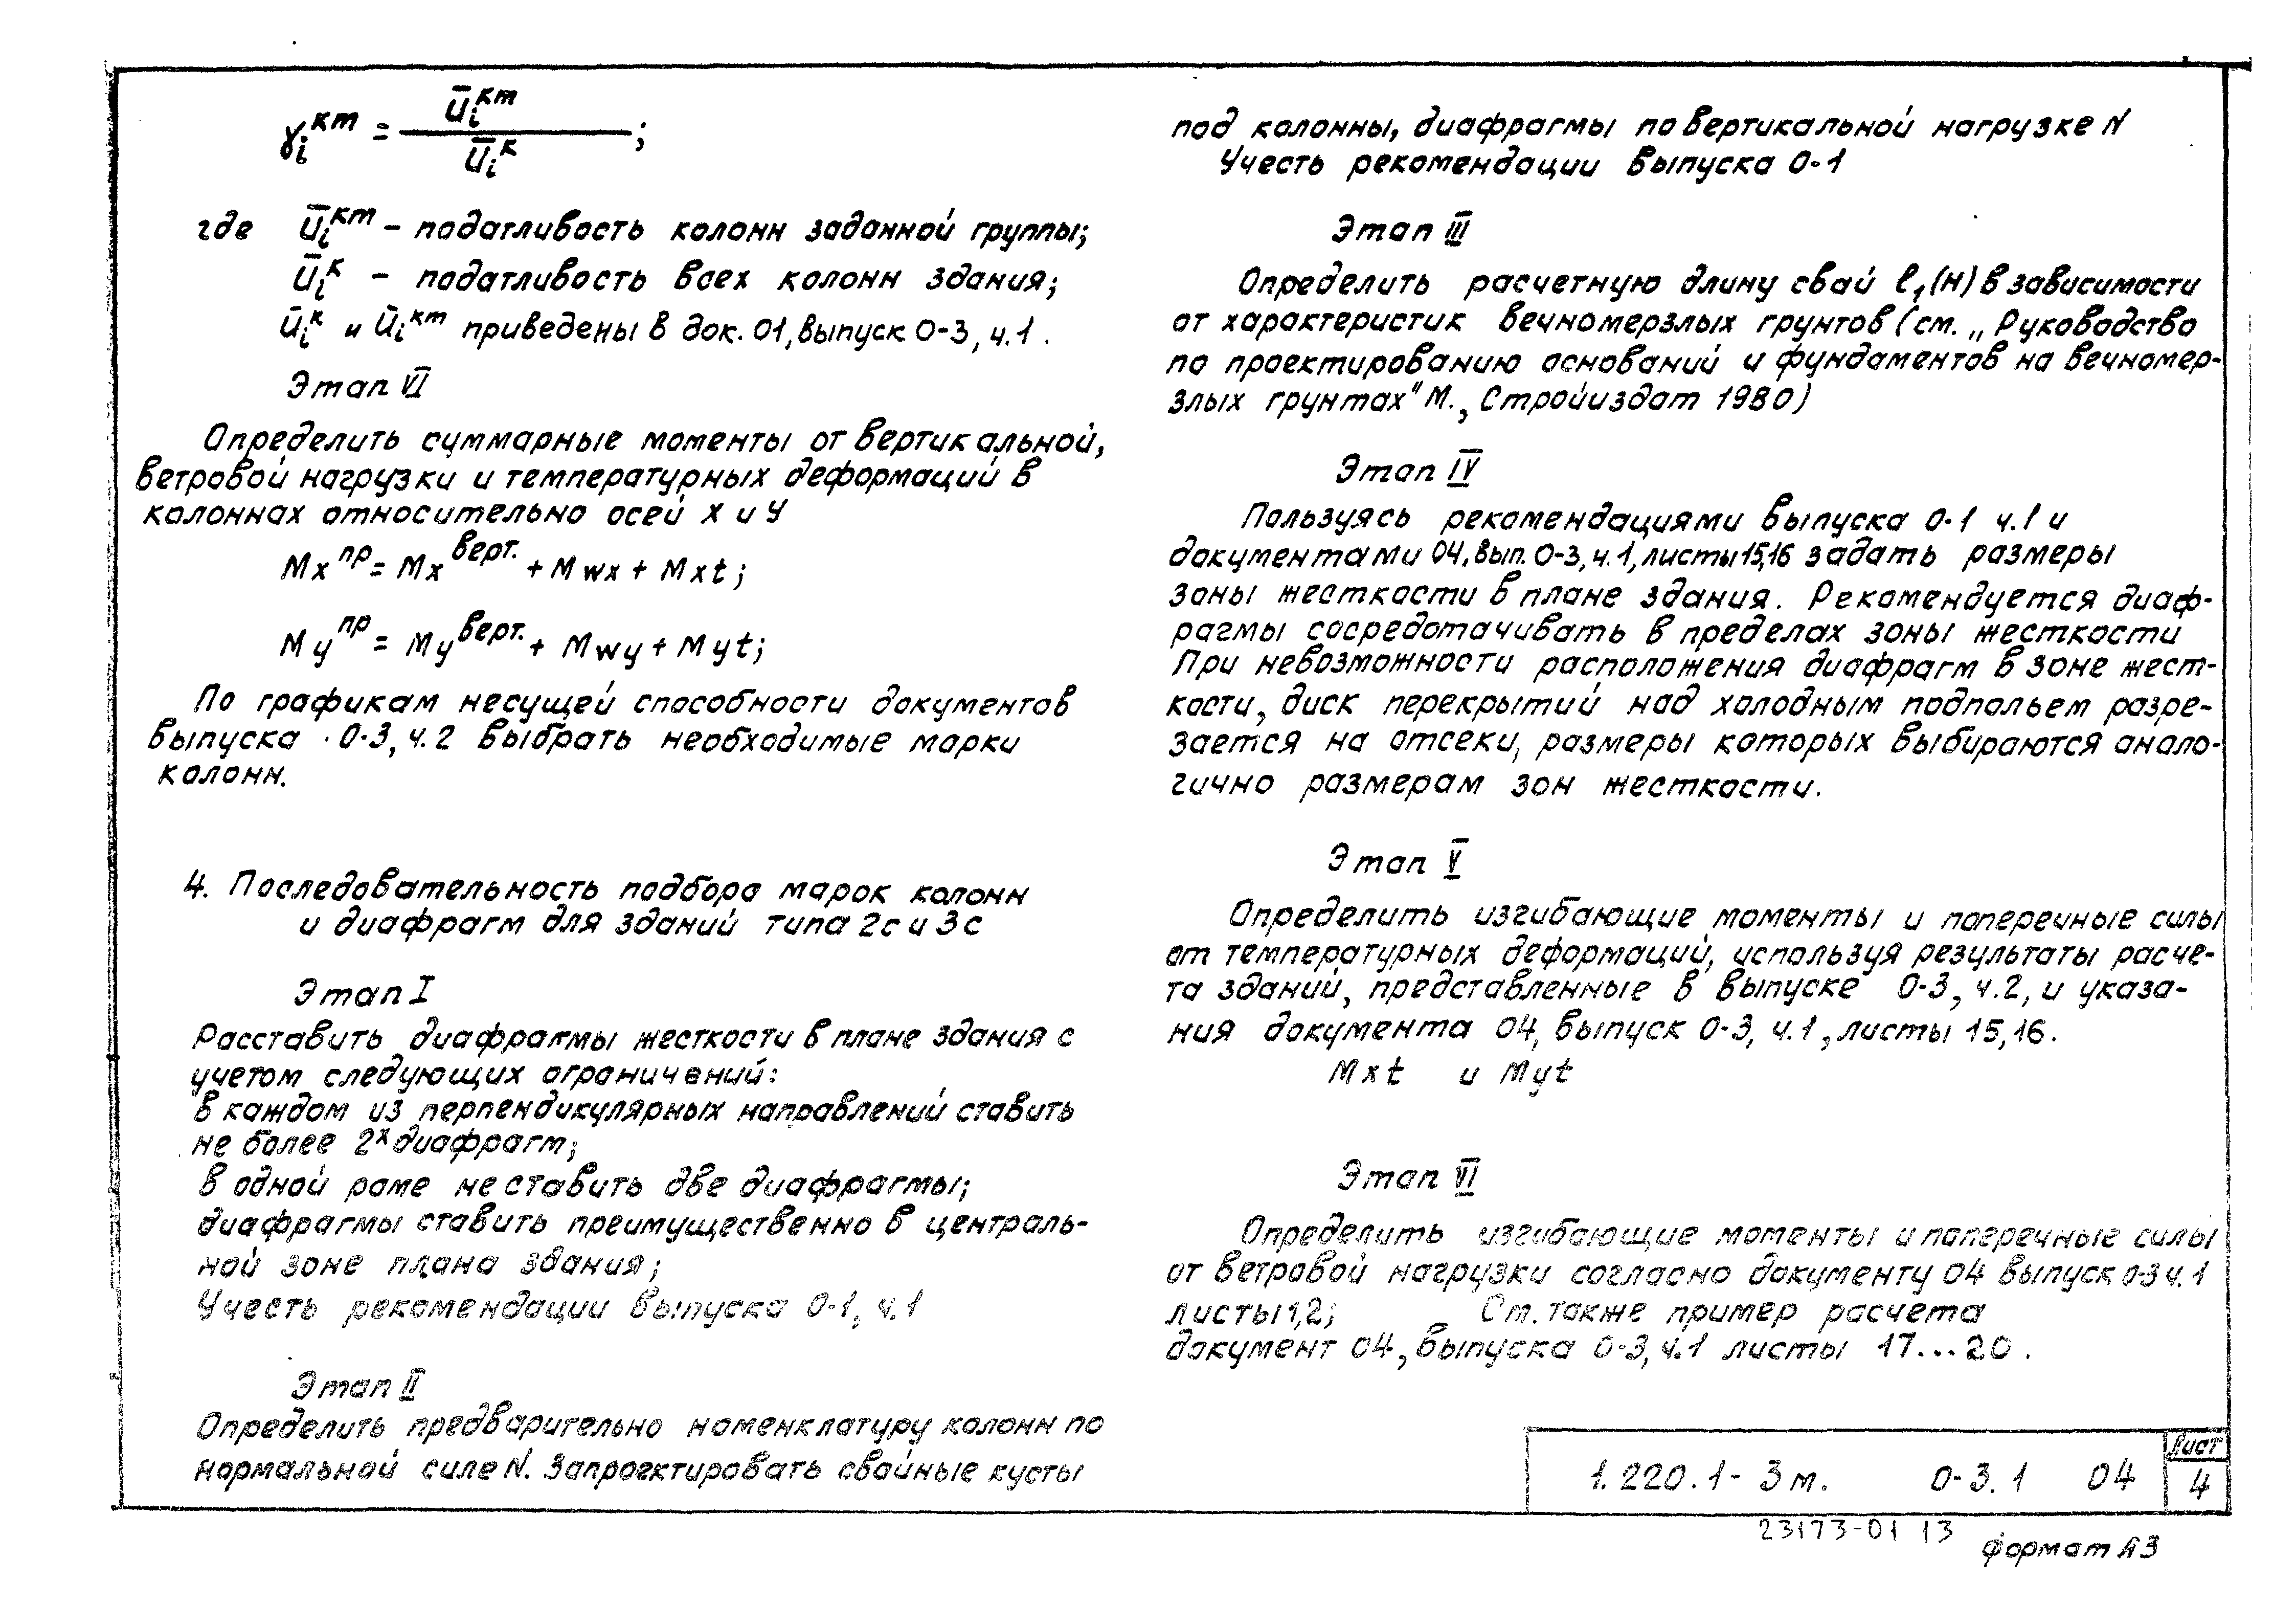 γᵢᵏᵐ = ūᵢᵏᵐ / ūᵢᵏ ;
где ūᵢᵏᵐ – податливость колонн заданной группы;
ūᵢᵏ – податливость всех колонн здания;
ūᵢᵏ и ūᵢᵏᵐ приведены в док. 01, выпуск 0-3, ч.1 .
Этап VI
Определить суммарные моменты от вертикальной,
ветровой нагрузки и температурных деформаций в
колоннах относительно осей X и У
Mx пр = Mx верт. + Mwx + Mxt ;
My пр = My верт. + Mwy + Myt;
По графикам несущей способности документов
выпуска 0-3, ч.2 выбрать необходимые марки
колонн.
4. Последовательность подбора марок колонн
и диафрагм для зданий типа 2с и 3с
Этап I
Расставить диафрагмы жесткости в плане здания с
учетом следующих ограничений:
в каждом из перпендикулярных направлений ставить
не более 2х диафрагм;
в одной раме не ставить две диафрагмы;
диафрагмы ставить преимущественно в централь-
ной зоне плана здания;
Учесть рекомендации выпуска 0-1, ч.1
Этап II
Определить предварительно номенклатуру колонн по
нормальной силе N. Запроектировать свайные кусты
под колонны, диафрагмы по вертикальной нагрузке N
Учесть рекомендации выпуска 0-1
Этап III
Определить расчетную длину свай l₁(Н) в зависимости
от характеристик вечномерзлых грунтов (см. „Руководство
по проектированию оснований и фундаментов на вечномер-
злых грунтах" М., Стройиздат 1980)
Этап IV
Пользуясь рекомендациями выпуска 0-1 ч.1 и
документами 04, вып. 0-3, ч.1, листы 15,16 задать размеры
зоны жесткости в плане здания. Рекомендуется диаф-
рагмы сосредотачивать в пределах зоны жесткости
При невозможности расположения диафрагм в зоне жест-
кости, диск перекрытий над холодным подпольем разре-
зается на отсеки, размеры которых выбираются анало-
гично размерам зон жесткости.
Этап V
Определить изгибающие моменты и поперечные силы
от температурных деформаций, используя результаты расче-
та зданий, представленные в выпуске 0-3, ч.2, и указа-
ния документа 04, выпуск 0-3, ч.1, листы 15,16.
Mxt и Myt
Этап VI
Определить изгибающие моменты и поперечные силы
от ветровой нагрузки согласно документу 04 выпуск 0-3 ч.1
листы 1,2; Ст. также пример расчета
документ 04, выпуска 0-3, ч.1 листы 17...20 .
1.220.1- 3м. 0-3.1 04
Лист
4
23173-01 13
формат А3